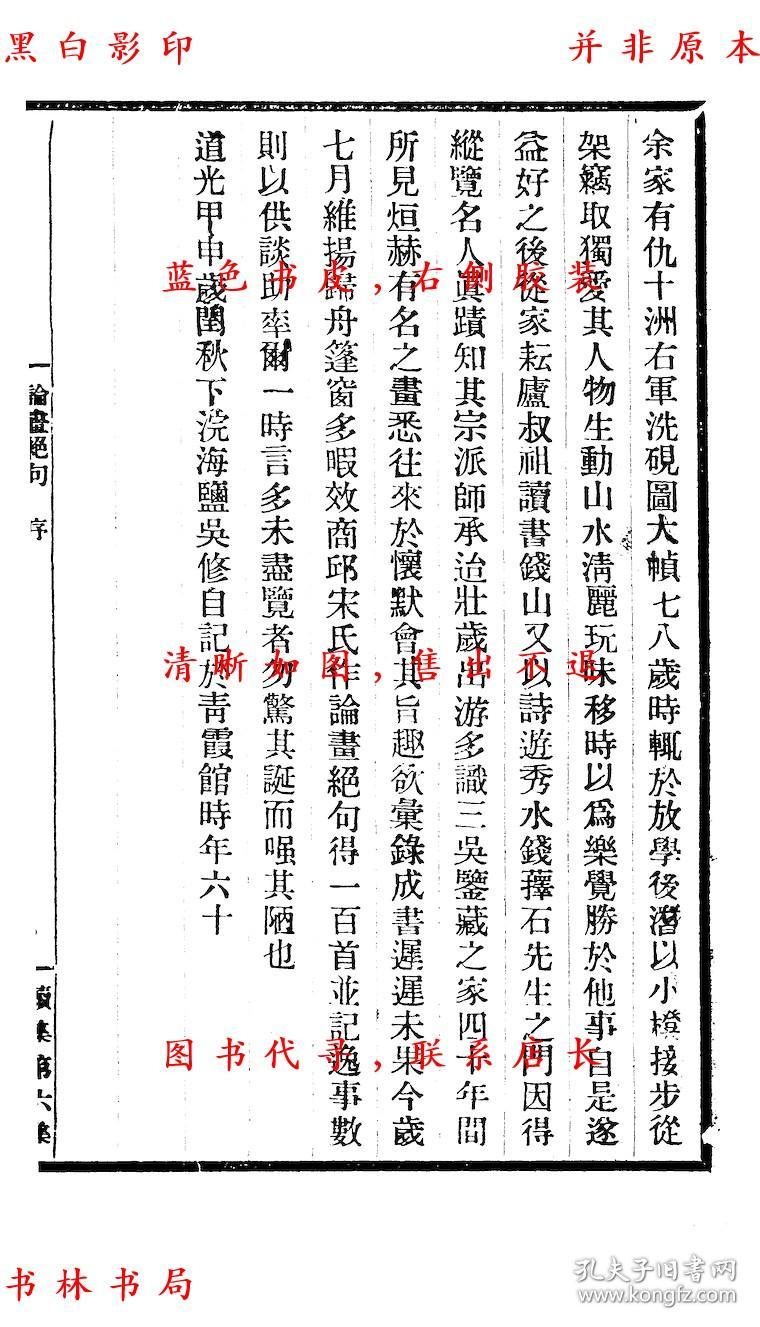 黑白影印
并非原本
余家有仇十洲右軍洗硯圖大幀七八歲時輒於放學後潛以小橙接步從
架竊取獨愛其人物生動山水清麗玩味移時以爲樂覺勝於他事自是遂
益好之後從家耘廬叔祖讀書錢山又以詩遊秀水錢蘀石先生之門因得
縱覽名人眞蹟知其宗派師承迨壯歲出游多識三吳鑒藏之家四十年間
所見烜赫有名之畫悉往來於懷默會其旨趣欲彙錄成書遲遲未果今歲
七月維揚歸舟篷窗多暇效商邱宋氏作論畫絕句得一百首並記逸事數
則以供談助率爾一時言多未盡覽者勿驚其誕而嗤其陋也
道光甲申歲閏秋下浣海鹽吳修自記於青霞館時年六十
論畫絕句 序
續集第六集
蓝色书皮，右侧胶装
清晰如图，售出不退
图书代寻，联系店长
书林书局
孔夫子旧书网
www.kongfz.com